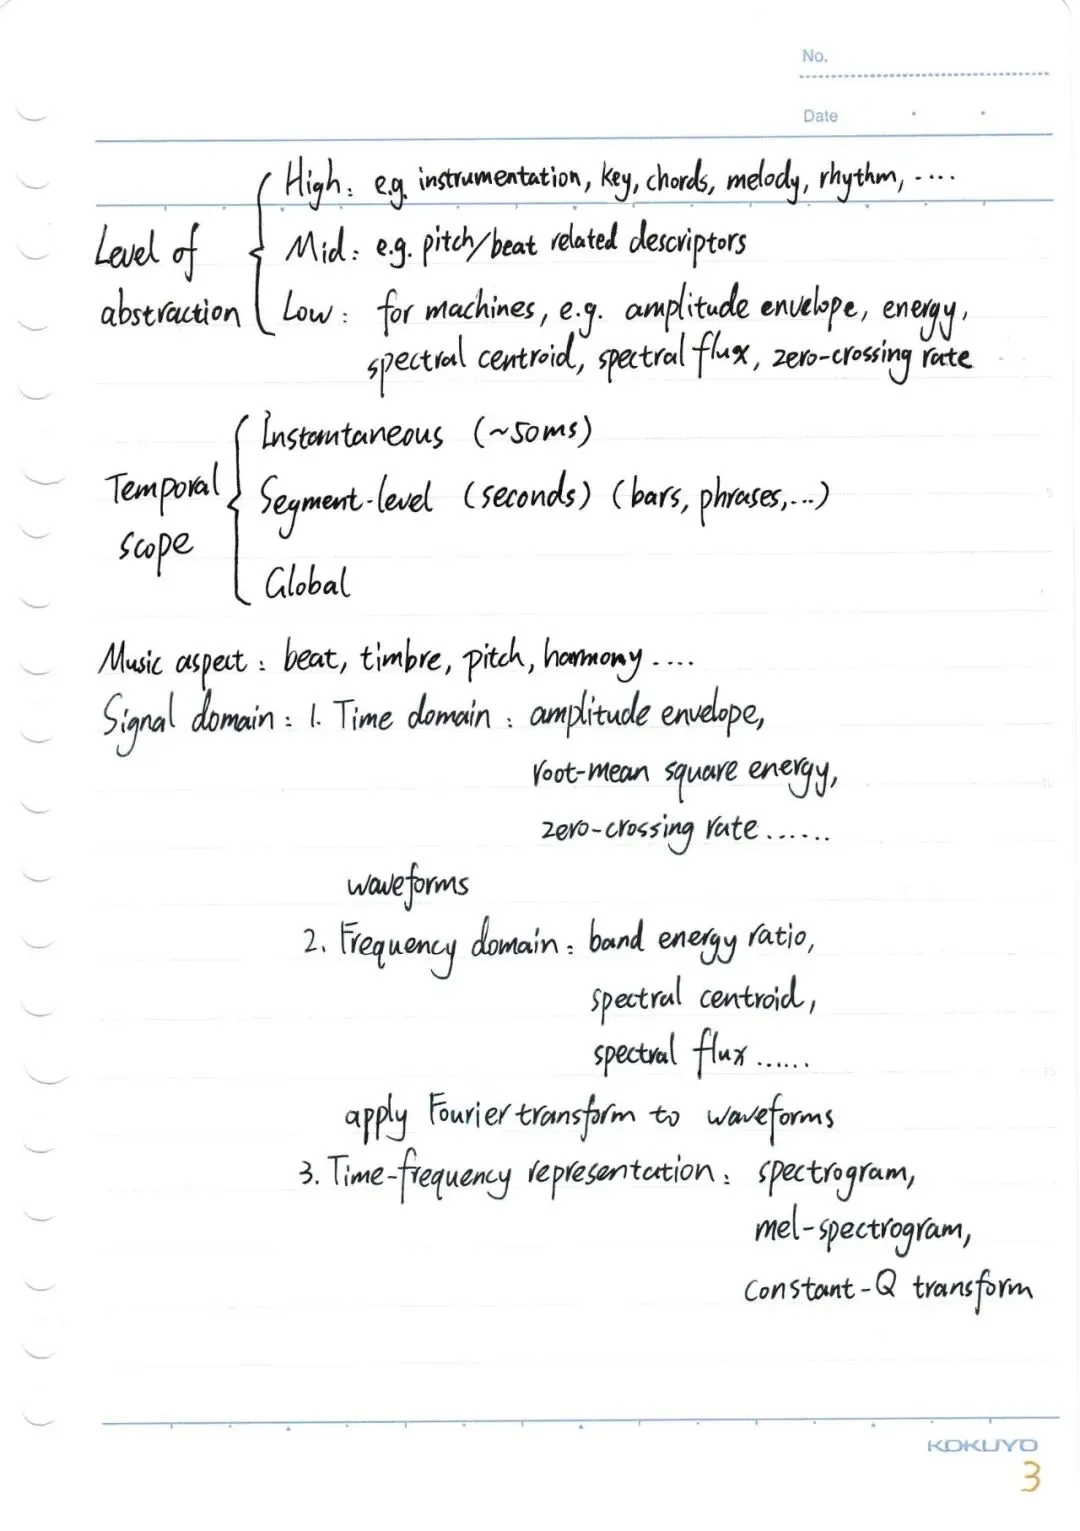 No.
Date
High: e.g. instrumentation, key, chords, melody, rhythm, ....
Level of abstraction
Mid: e.g. pitch/beat related descriptors
Low: for machines, e.g. amplitude envelope, energy,
spectral centroid, spectral flux, zero-crossing rate
Temporal scope
Instantaneous (~50ms)
Segment-level (seconds) (bars, phrases,...)
Global
Music aspect: beat, timbre, pitch, harmony ....
Signal domain: 1. Time domain: amplitude envelope,
root-mean square energy,
zero-crossing rate ......
waveforms
2. Frequency domain: band energy ratio,
spectral centroid,
spectral flux ......
apply Fourier transform to waveforms
3. Time-frequency representation: spectrogram,
mel-spectrogram,
constant-Q transform
KOKUYO
3